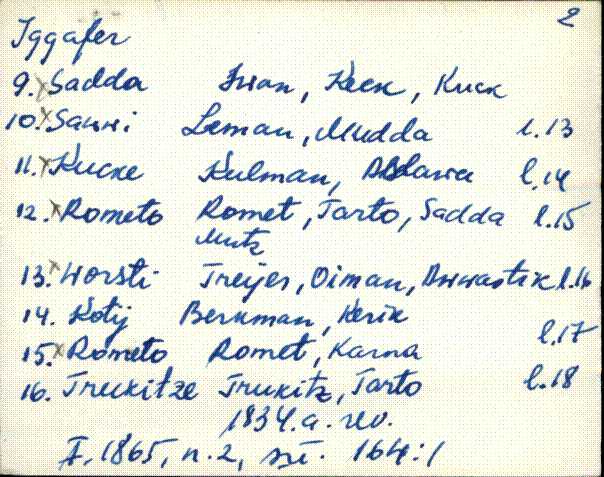 2
Iggafer
9. Sadda Iwan, Keck, Kuck
10. Sawwi Leman, Mudda l.13
11. Kucke Kulman, l.14
12. Rometo Romet, Tarto, Sadda l.15
Mutz
13. Worsti Treijer, Oiman, Awwastik l.16
14. Kotij Berkman, Kerik
15. Rometo Romet, Karna l.17
16. Trukitze Trukitz, Tarto l.18
1834.a. rev.
1865, n.2, sü. 164:1